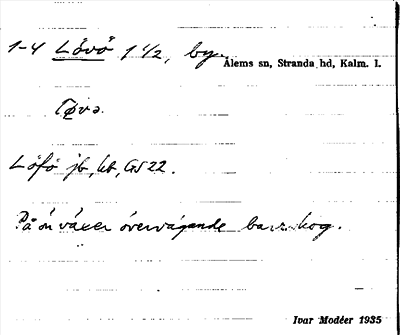 1-4 Lövö 1 1/2, by.
Ålems sn, Stranda hd, Kalm. l.
Löfö jb, kb, GS 22.
På ön växer övervägande barrskog.
Ivar Modéer 1935